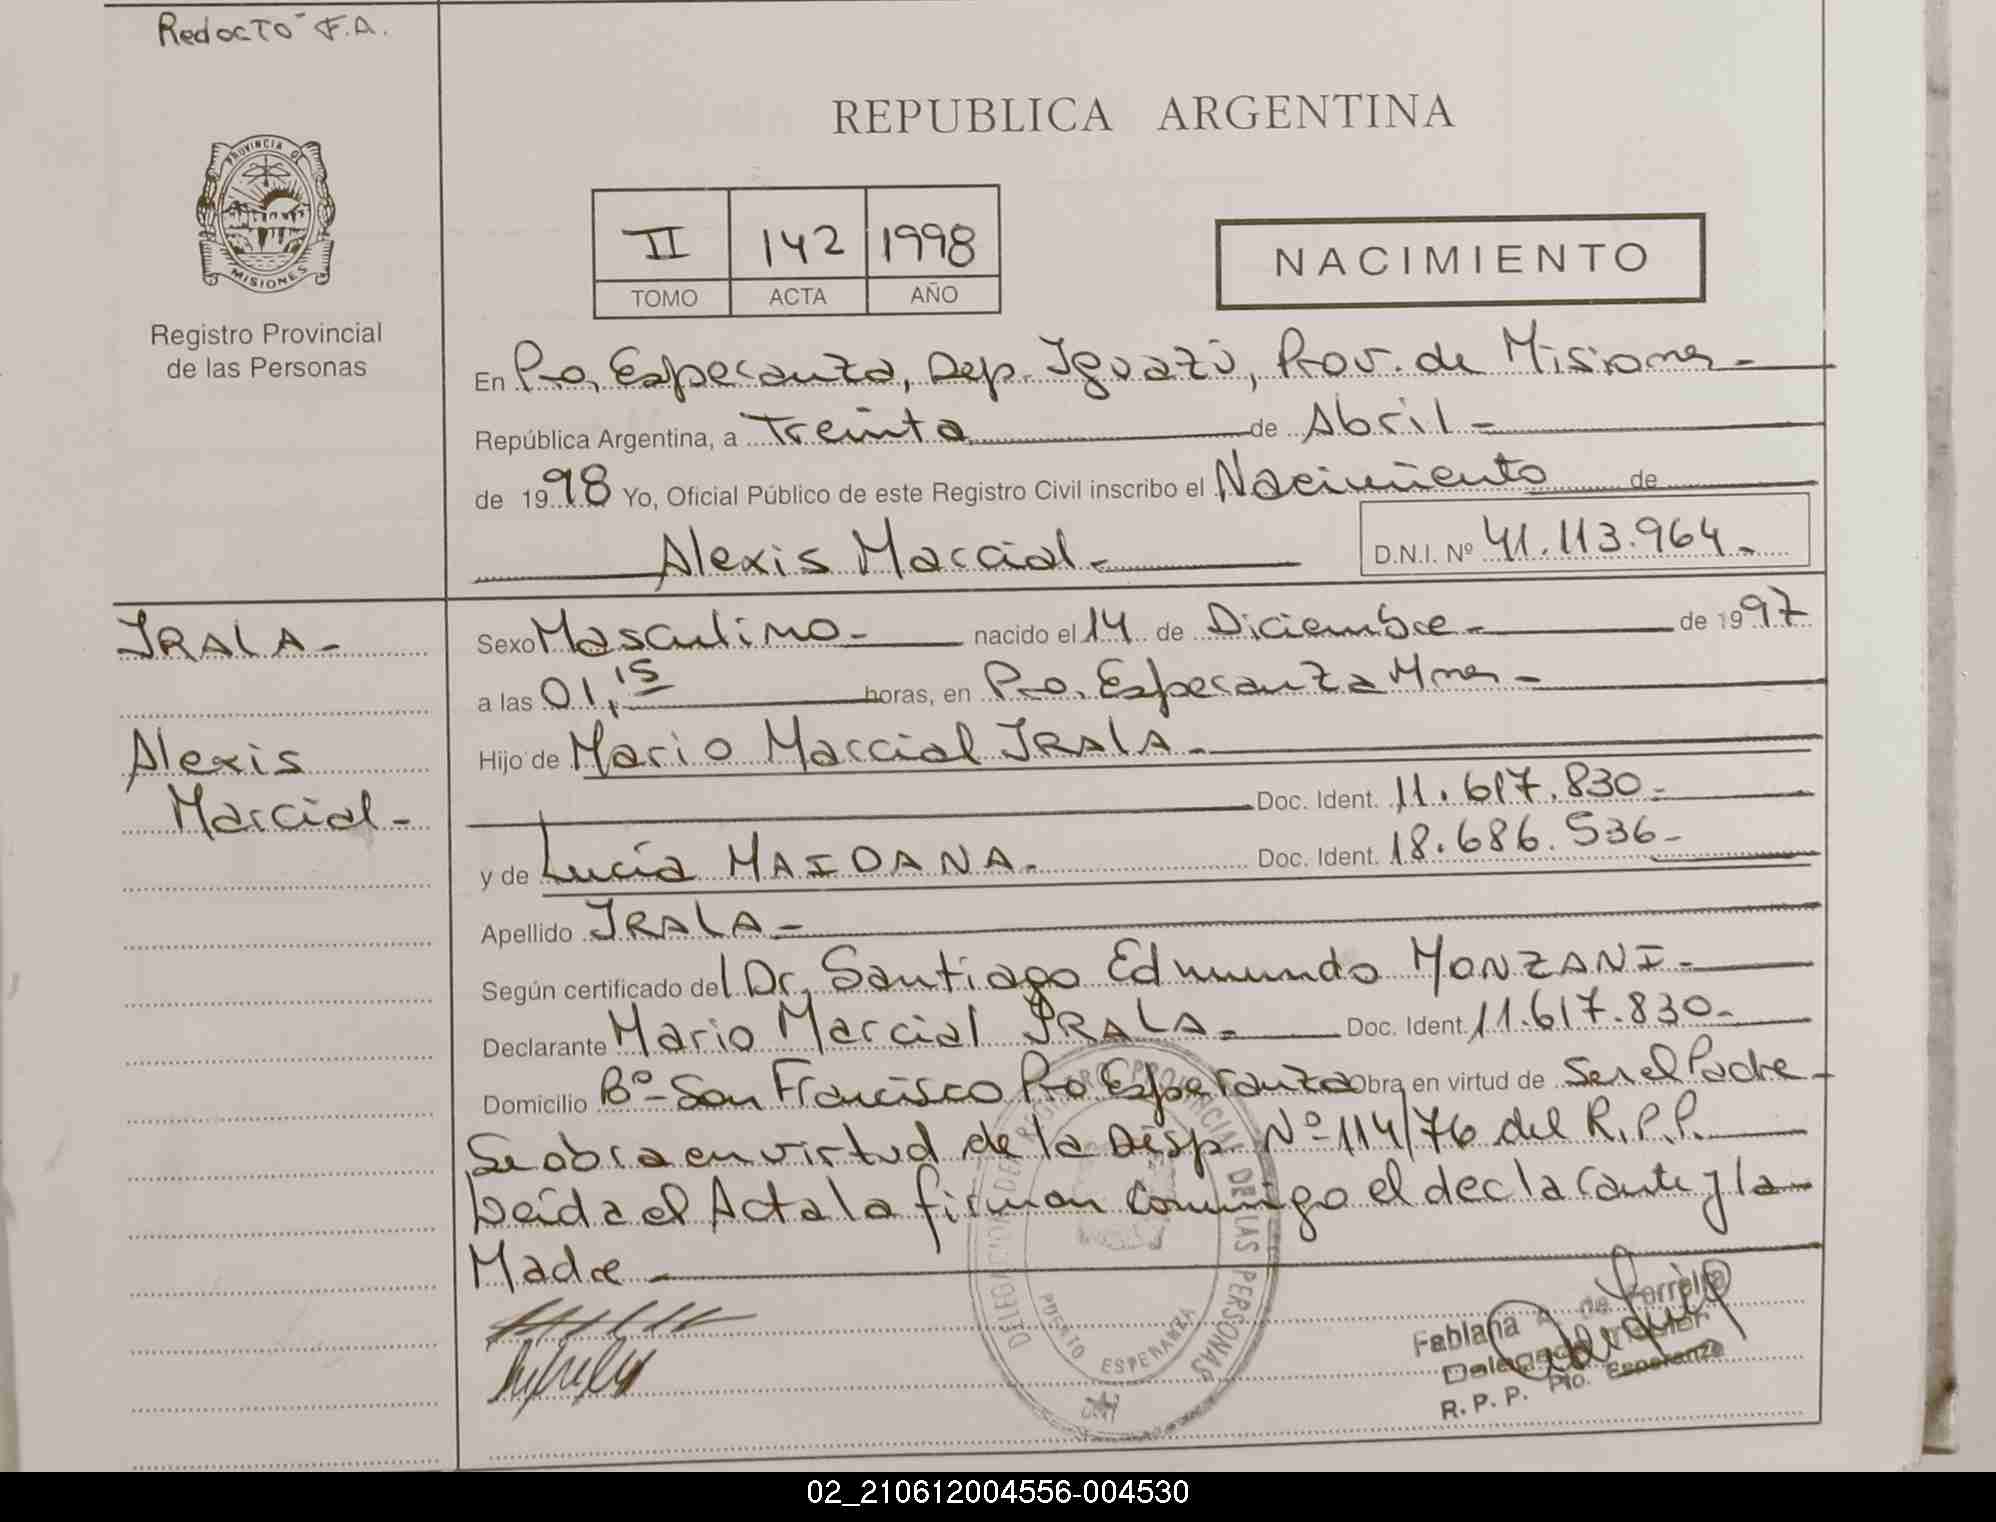 Redactó F.A.
PROVINCIA DE
MISIONES
Registro Provincial
de las Personas
REPUBLICA ARGENTINA
II 142 1998
TOMO ACTA AÑO
NACIMIENTO
En Pto, Esperanza, Dep. Iguazú, Prov. de Misiones -
República Argentina, a Treinta de Abril -
de 1998 Yo, Oficial Público de este Registro Civil inscribo el Nacimiento de
Alexis Marcial -
D.N.I. Nº 41.113.964 -
IRALA -
Alexis
Marcial -
Sexo Masculino - nacido el 14 de Diciembre - de 1997
a las 01,15 horas, en Pto. Esperanza Mnes -
Hijo de Mario Marcial IRALA -
Doc. Ident. 11.617.830 -
y de Lucía MAIDANA - Doc. Ident. 18.686.536 -
Apellido IRALA -
Según certificado del Dr. Santiago Edmundo MONZANI -
Declarante Mario Marcial IRALA - Doc. Ident. 11.617.830 -
Domicilio Bº - San Francisco Pto Esperanza Obra en virtud de Ser el Padre -
Se obra en virtud de la Disp. Nº 114/76 del R.P.P.
Leída el Acta la firman conmigo el declarante y la -
Madre
DELEGACION DEL REGISTRO PROVINCIAL DE LAS PERSONAS
PUERTO ESPERANZA
Fabiana A. de Ferreira
Delegada Titular
R. P. P. Pto. Esperanza
02_210612004556-004530